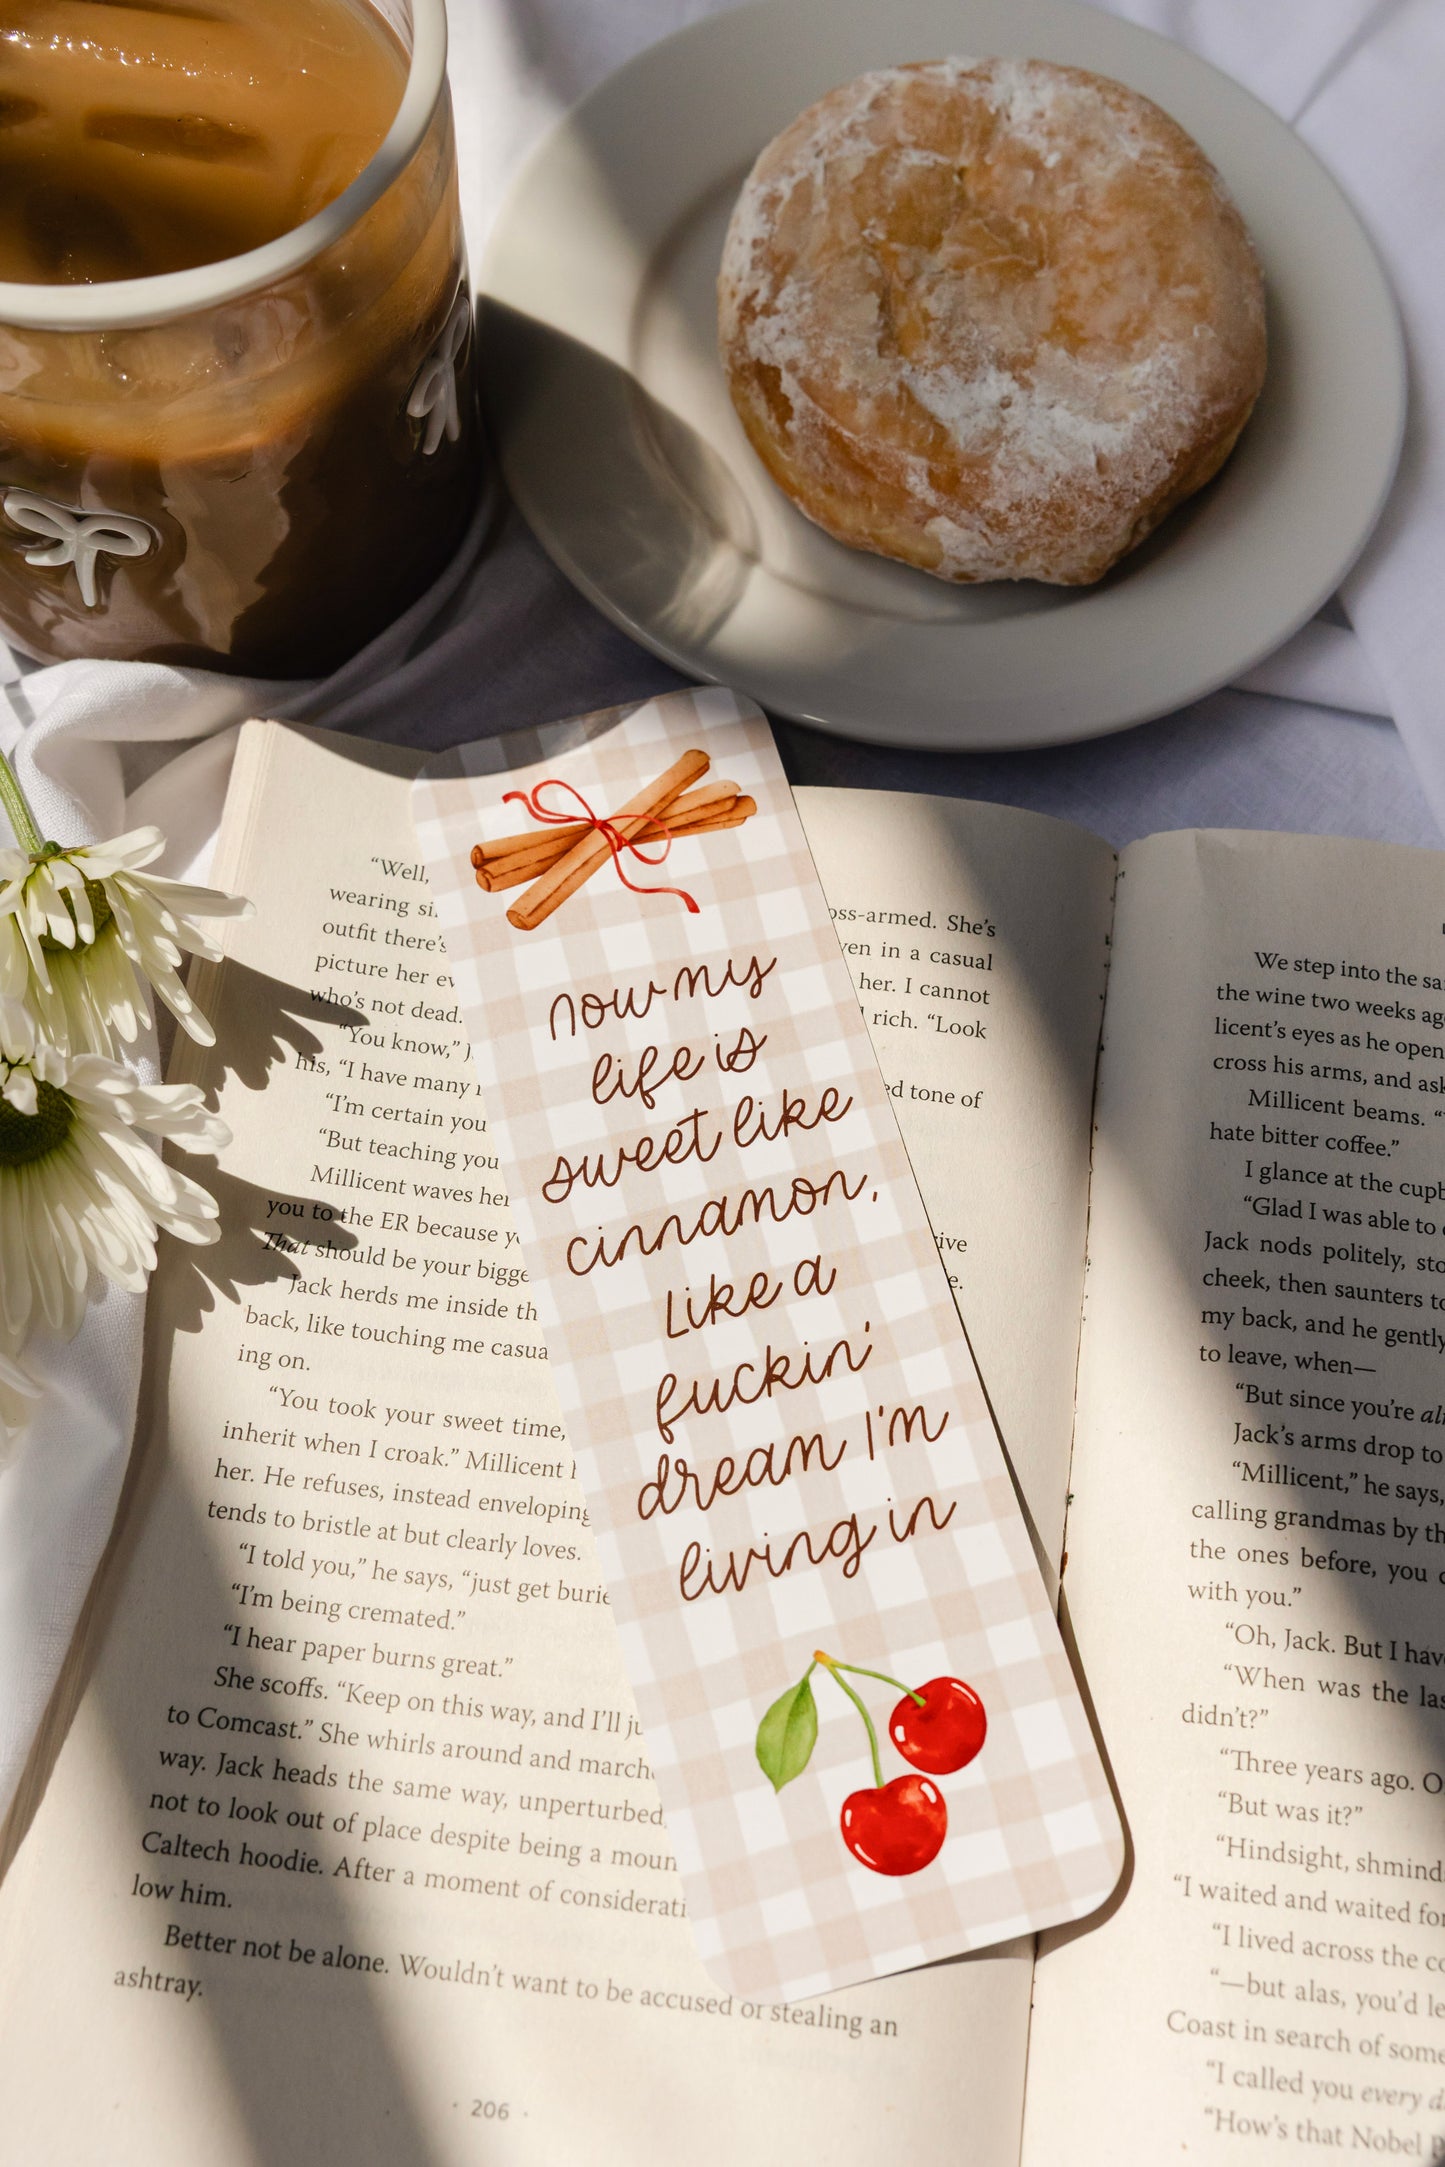 now my
life is
sweet like
cinnamon,
Like a
fuckin'
dream I'm
living in
“Well,
wearing
outfit there's
picture her
who's not dead.
“You know,”
his, “I have many
“I'm certain you
“But teaching you
Millicent waves her
you to the ER because
That should be your
Jack herds me inside
back, like touching me
ing on.
“You took your sweet time,
inherit when I croak.” Millicent
her. He refuses, instead enveloping
tends to bristle at but clearly loves.
“I told you,” he says, “just get
“I'm being cremated.”
“I hear paper burns great.”
She scoffs. “Keep on this way, and I'll
to Comcast.” She whirls around and
way. Jack heads the same way, unperturbed,
not to look out of place despite being a
Caltech hoodie. After a moment of
low him.
Better not be alone. Wouldn't want to be accused of stealing an
ashtray.
· 206 ·
She's
in a casual
her. I cannot
rich. “Look
tone of
We step into the
the wine two weeks
licent's eyes as he
cross his arms, and
Millicent beams.
hate bitter coffee.”
I glance at the
“Glad I was able to
Jack nods politely,
cheek, then saunters
my back, and he gently
to leave, when—
“But since you're
Jack's arms drop to
“Millicent,” he says,
calling grandmas by
the ones before, you
with you.”
“Oh, Jack. But I
“When was the
didn't?”
“Three years ago.
“But was it?”
“Hindsight,
“I waited and waited
“I lived across the
“—but alas, you'd
Coast in search of
“I called you every
“How's that Nobel